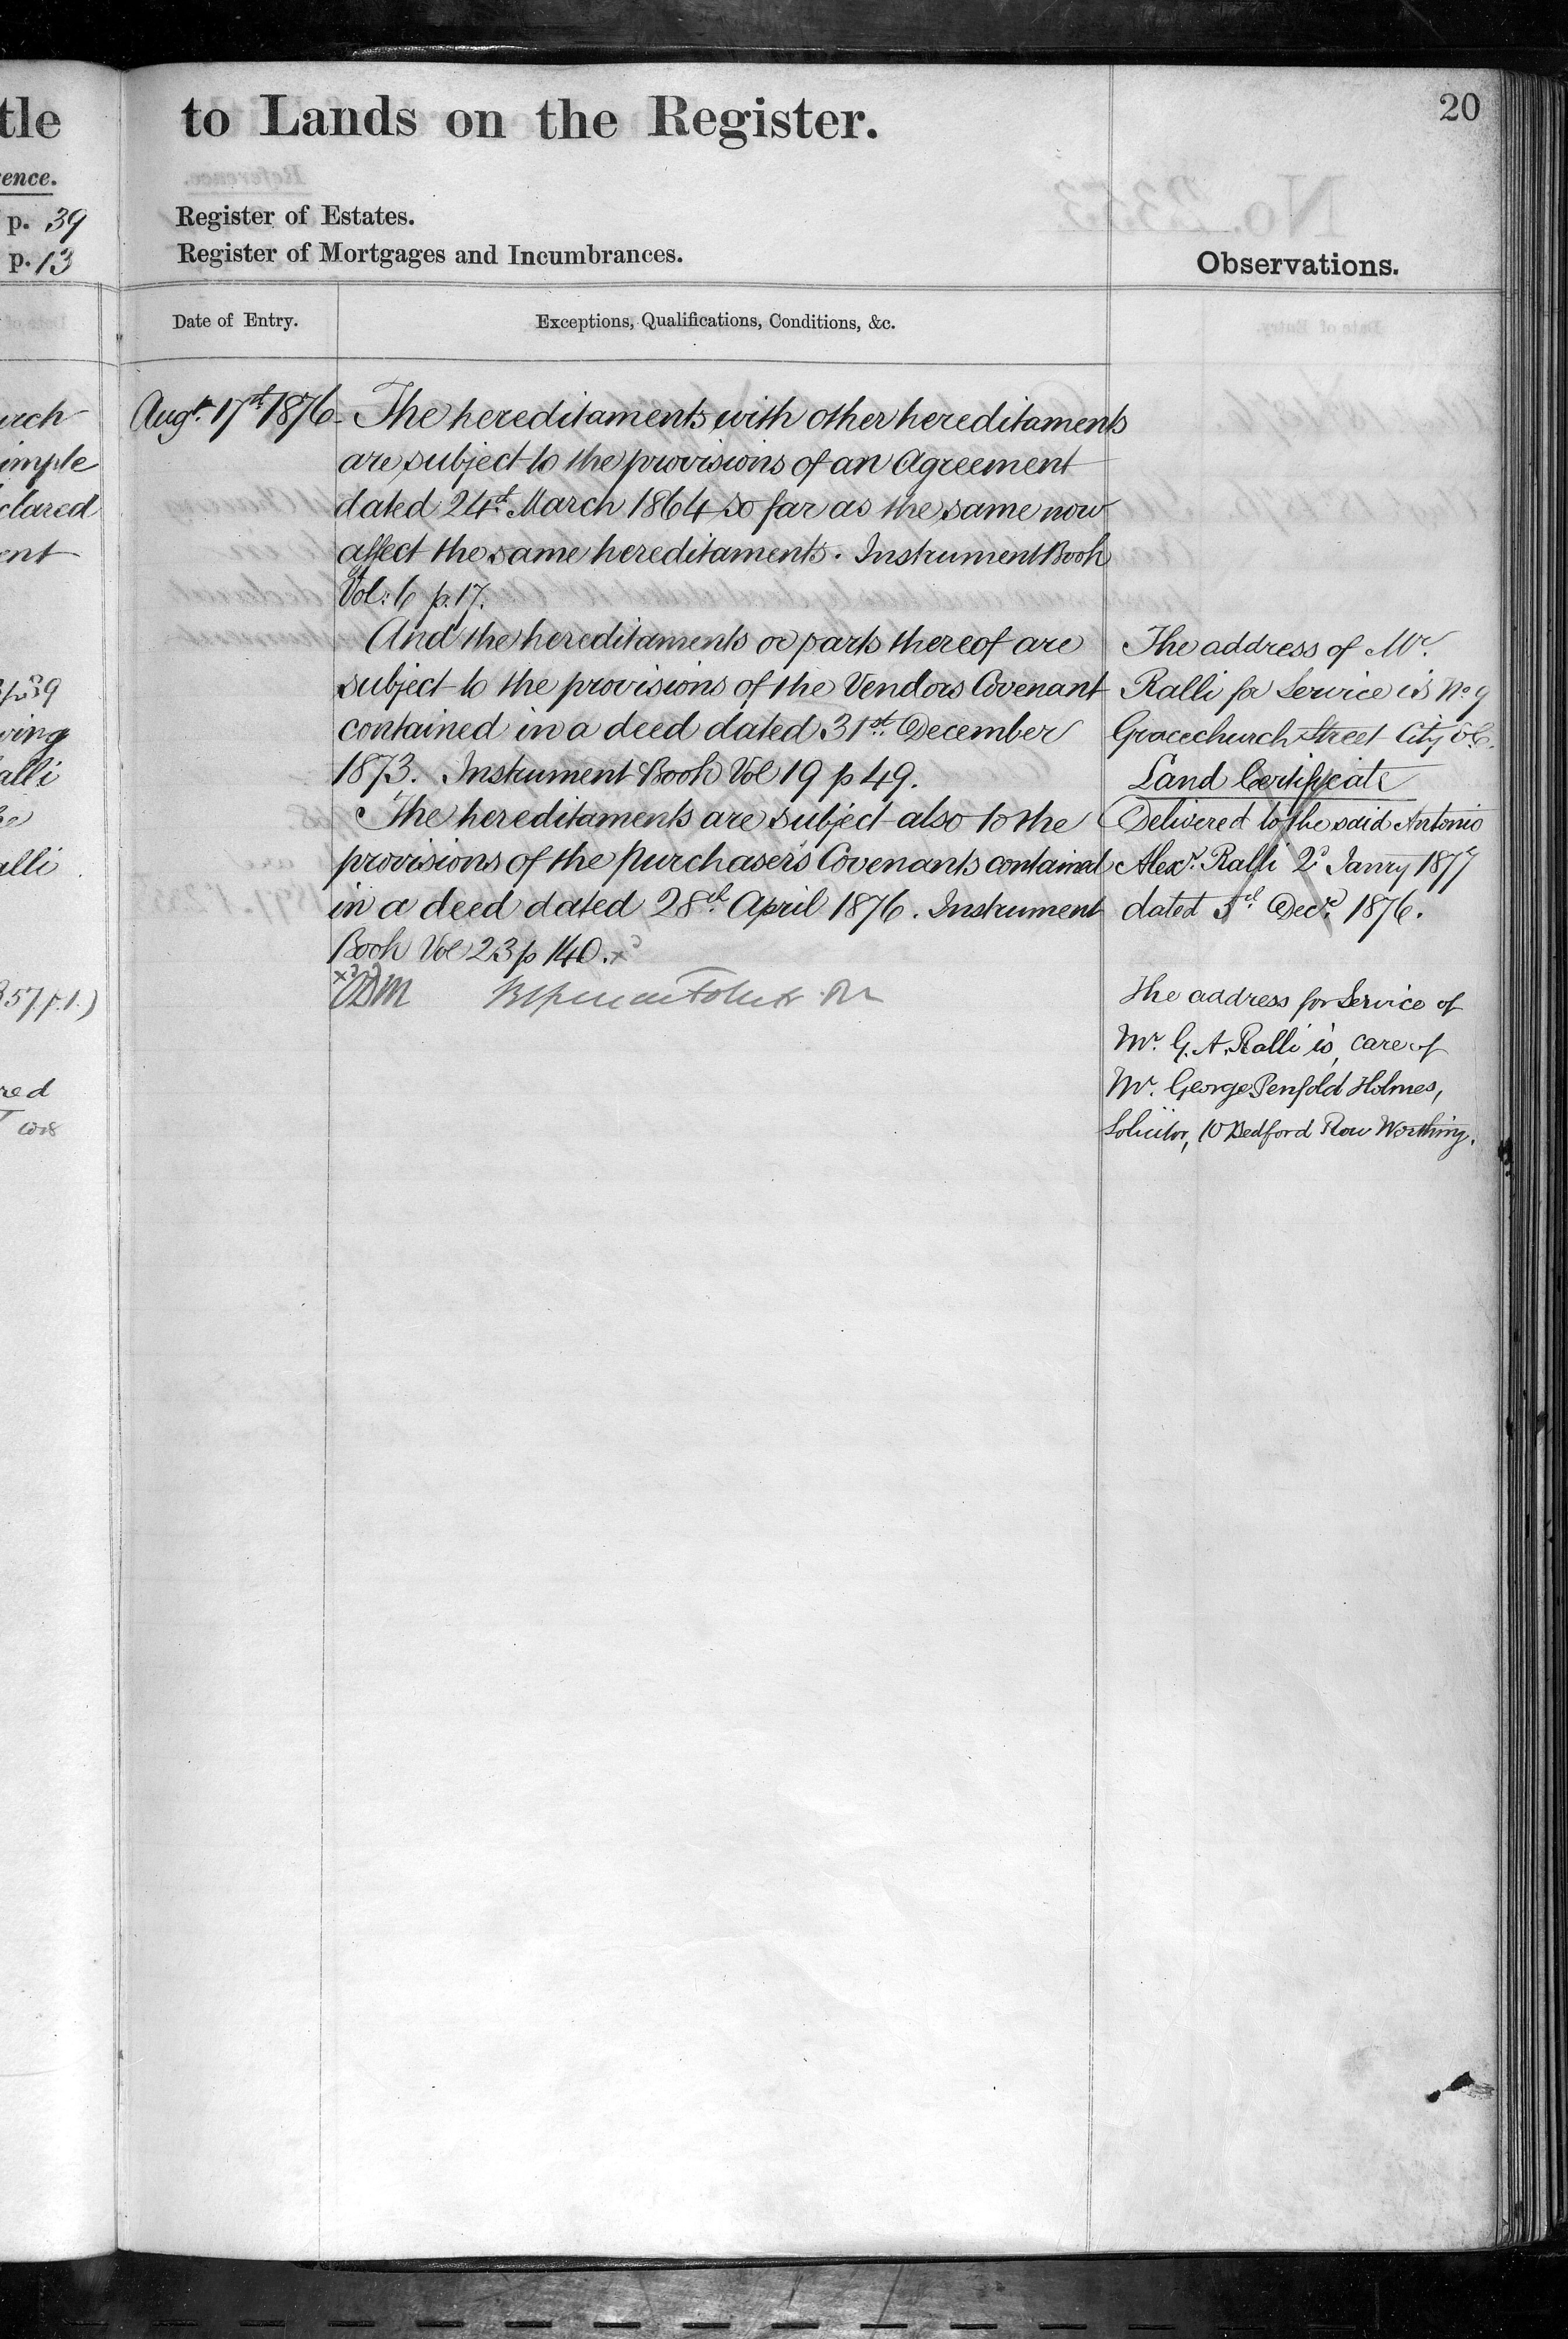 tle
ence.
p. 39
p. 13
urch
imple
clared
ent
p 39
ving
alli
alli
357 p. 1.)
red
to Lands on the Register.
20
Register of Estates.
Register of Mortgages and Incumbrances.
Observations.
Date of Entry.
Exceptions, Qualifications, Conditions, &c.
Augt. 17th 1876
The hereditaments with other hereditaments
are subject to the provisions of an Agreement
dated 24th March 1864 so far as the same now
affect the same hereditaments. Instrument Book
Vol: 6 p. 17.
And the hereditaments or parts thereof are
subject to the provisions of the Vendors Covenant
contained in a deed dated 31st December
1873. Instrument Book Vol 19 p 49.
The hereditaments are subject also to the
provisions of the purchaser's Covenants contained
in a deed dated 28th April 1876. Instrument
Book Vol 23 p 140.
The address of Mr.
Ralli for Service is No 9
Gracechurch Street City E.C.
Land Certificate
Delivered to the said Antonio
Alexr. Ralli 2d Janry 1877
dated 5th Decr. 1876.
The address for Service of
Mr. G. A. Ralli is, care of
Mr. George Penfold Holmes,
Solicitor, 10 Bedford Row Worthing.